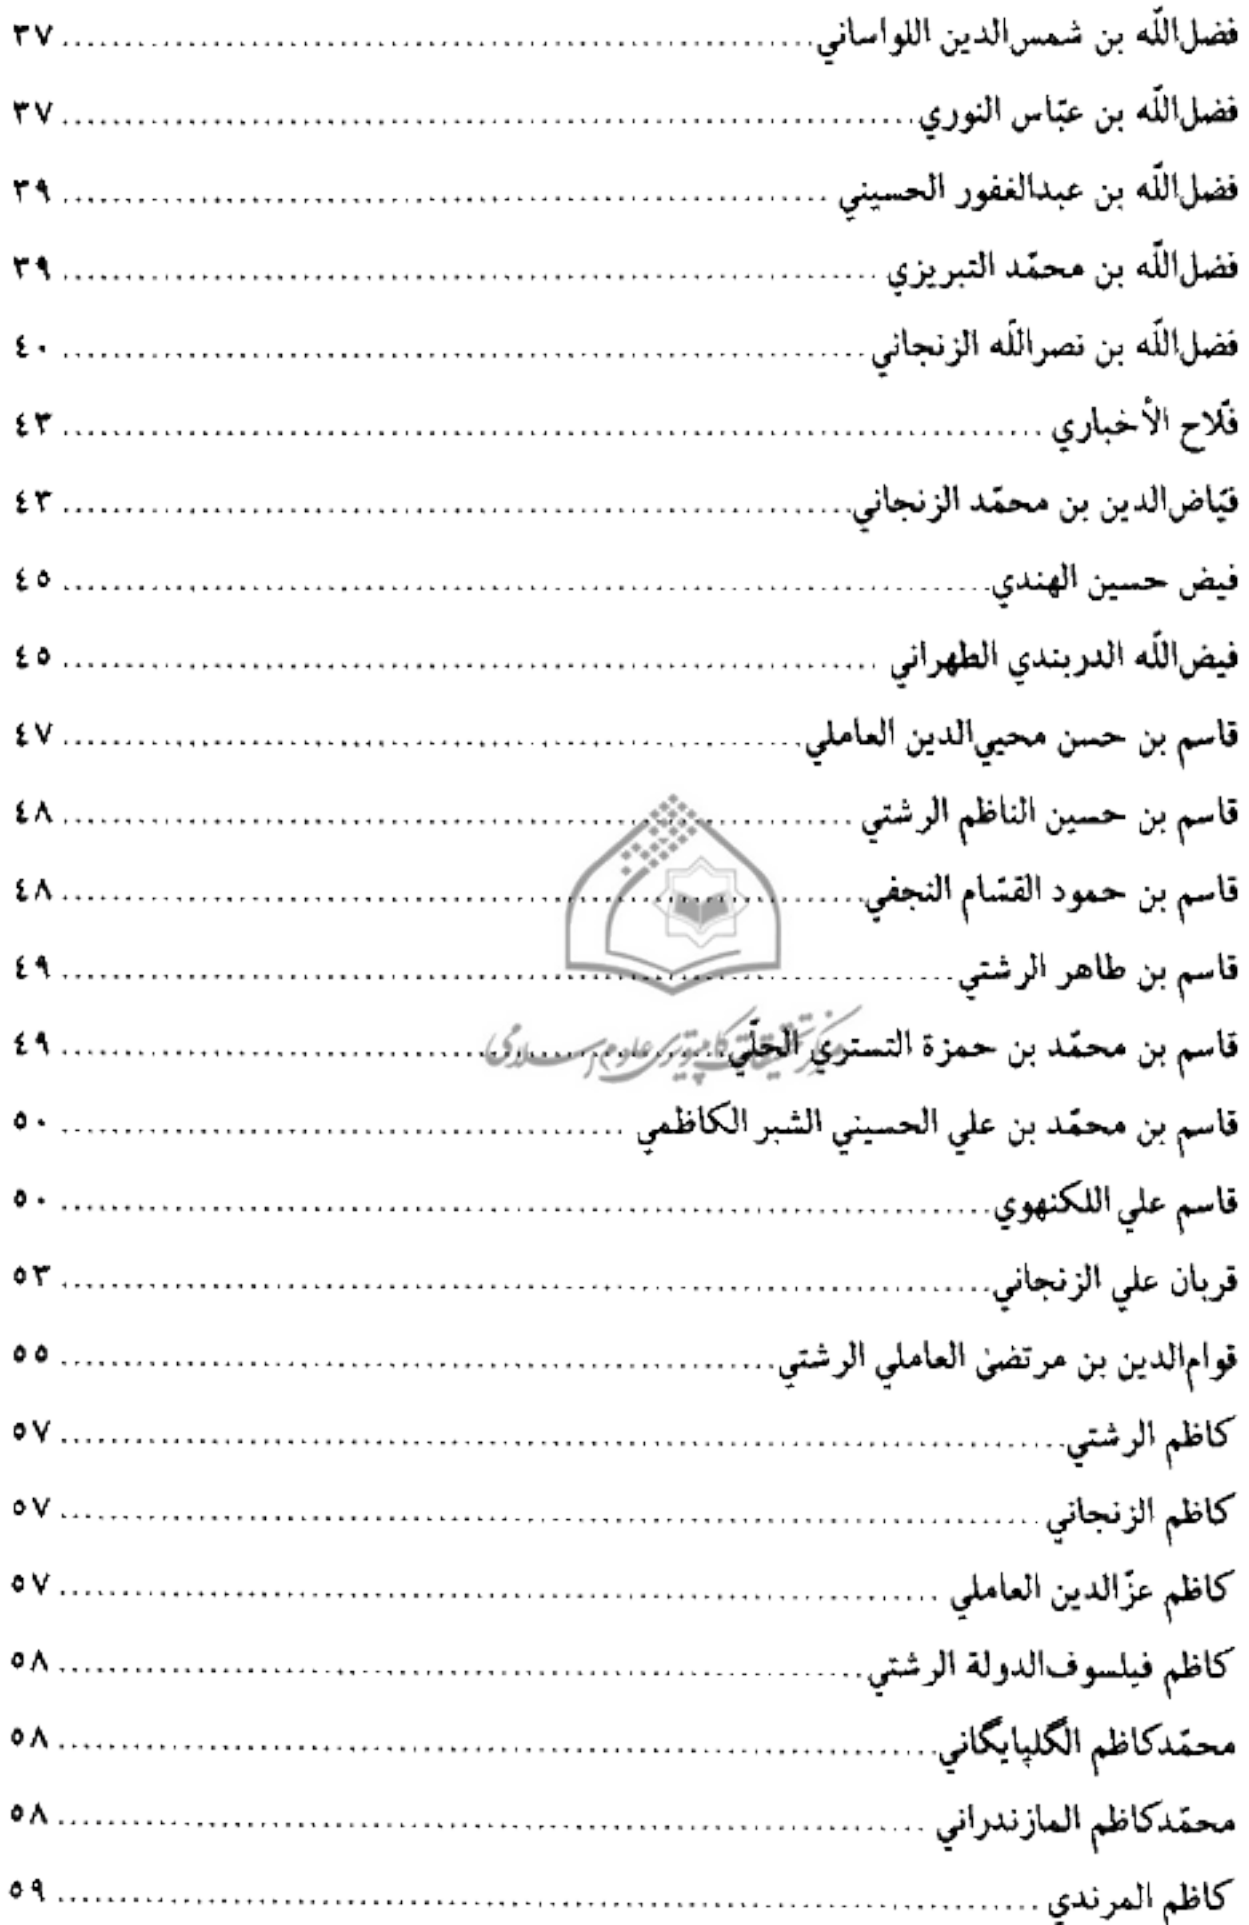 فضل‌اللّه بن شمس‌الدين اللواساني ........ ٣٧
فضل‌اللّه بن عبّاس النوري ........ ٣٧
فضل‌اللّه بن عبدالغفور الحسيني ........ ٣٩
فضل‌اللّه بن محمّد التبريزي ........ ٣٩
فضل‌اللّه بن نصراللّه الزنجاني ........ ٤٠
فلّاح الأخباري ........ ٤٣
فيّاض‌الدين بن محمّد الزنجاني ........ ٤٣
فيض حسين الهندي ........ ٤٥
فيض‌اللّه الدربندي الطهراني ........ ٤٥
قاسم بن حسن محيي‌الدين العاملي ........ ٤٧
قاسم بن حسين الناظم الرشتي ........ ٤٨
قاسم بن حمود القسّام النجفي ........ ٤٨
قاسم بن طاهر الرشتي ........ ٤٩
قاسم بن محمّد بن حمزة التستري الحلّي ........ ٤٩
مركز تحقيقات كامپيوتری علوم اسلامی
قاسم بن محمّد بن علي الحسيني الشبر الكاظمي ........ ٥٠
قاسم علي اللكنهوي ........ ٥٠
قربان علي الزنجاني ........ ٥٣
قوام‌الدين بن مرتضىٰ العاملي الرشتي ........ ٥٥
كاظم الرشتي ........ ٥٧
كاظم الزنجاني ........ ٥٧
كاظم عزّالدين العاملي ........ ٥٧
كاظم فيلسوف‌الدولة الرشتي ........ ٥٨
محمّدكاظم الگلپايگاني ........ ٥٨
محمّدكاظم المازندراني ........ ٥٨
كاظم المرندي ........ ٥٩